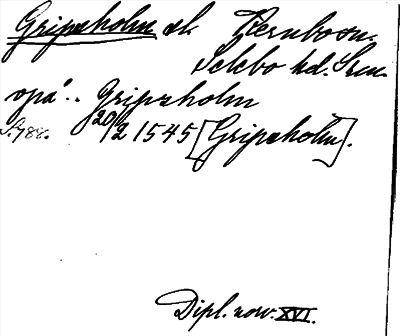 Gripsholm sl. Kernbo sn.
Selebo hd. Srm.
"på".. Gripsholm
S. 488. 20/2 1545 [Gripsholm].
Dipl. now. XVI.